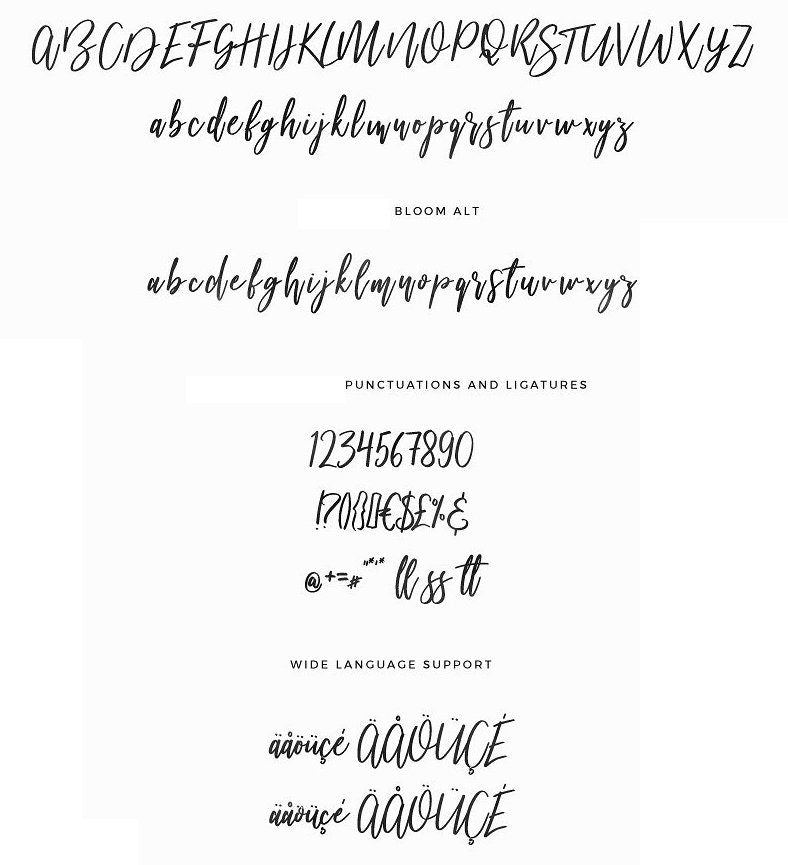 ABCDEFGHIJKLMNOPQRSTUVWXYZ
abcdefghijklmnopqrstuvwxyz
BLOOM ALT
abcdefghijklmnopqrstuvwxyz
PUNCTUATIONS AND LIGATURES
1234567890
!?(){}[]€$£%&
@+=#"*'* ll ss tt
WIDE LANGUAGE SUPPORT
äåöüçé ÄÅÖÜÇÉ
äåöüçé ÄÅÖÜÇÉ